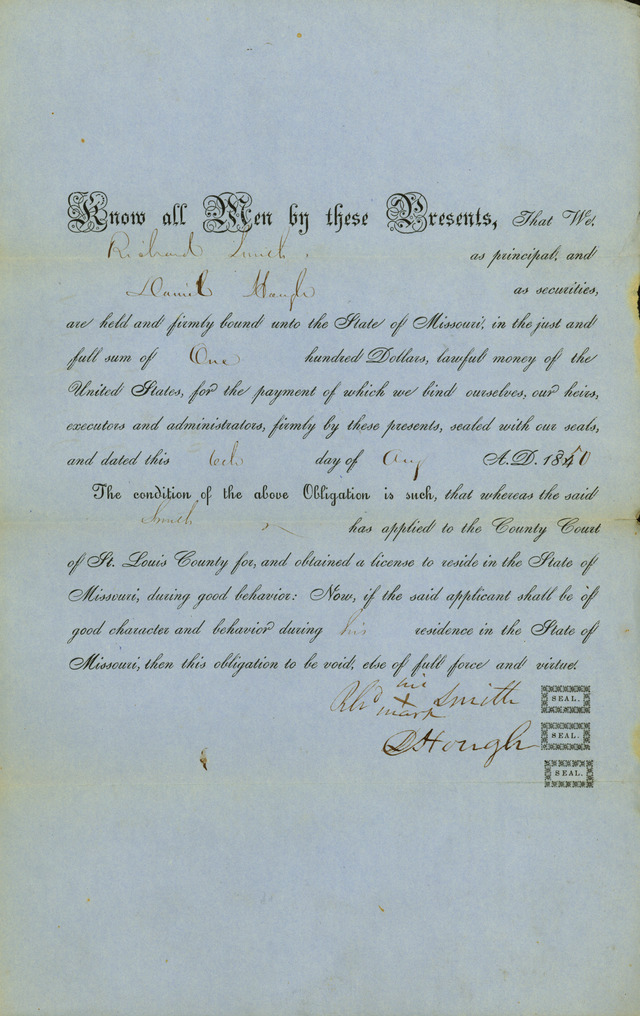 Know all Men by these Presents, That We,
Richard Smith, as principal, and
Daniel Hough as securities,
are held and firmly bound unto the State of Missouri, in the just and
full sum of One hundred Dollars, lawful money of the
United States, for the payment of which we bind ourselves, our heirs,
executors and administrators, firmly by these presents, sealed with our seals,
and dated this 6th day of Aug A.D. 1850
The condition of the above Obligation is such, that whereas the said
Smith has applied to the County Court
of St. Louis County for, and obtained a license to reside in the State of
Missouri, during good behavior: Now, if the said applicant shall be of
good character and behavior during his residence in the State of
Missouri, then this obligation to be void, else of full force and virtue.
his
Richd X Smith SEAL.
mark
D Hough SEAL.
SEAL.